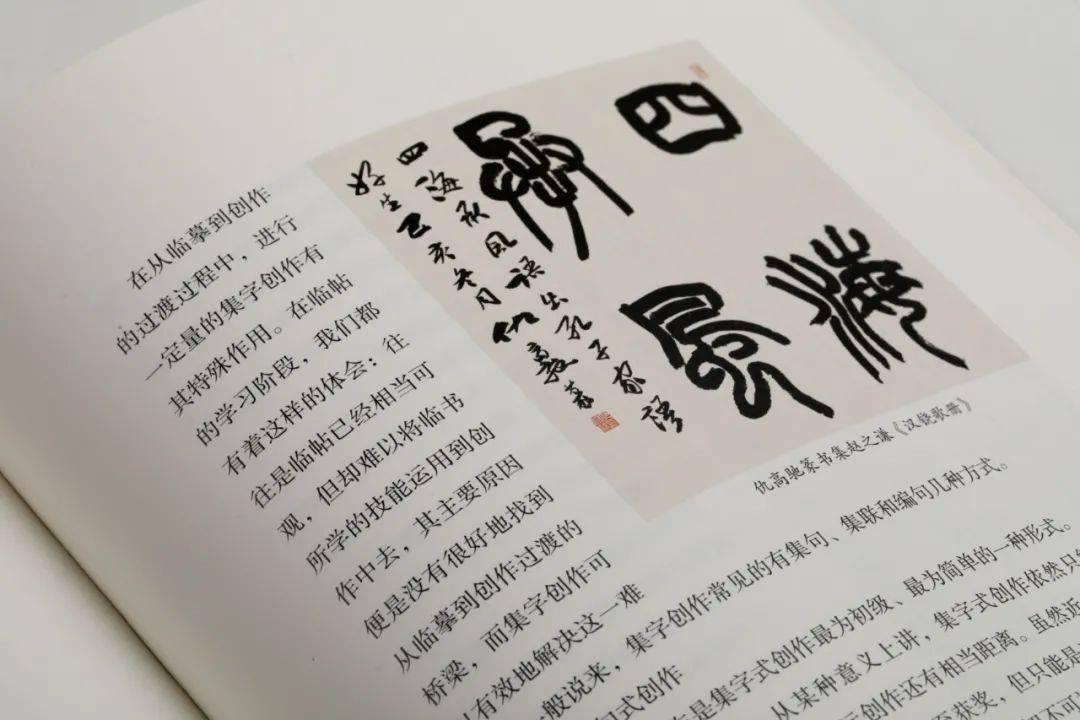 四海
承風
四海承风语出孔子家语
好生己亥冬月仇
仇高驰篆书集赵之谦《汉铙歌册》
在从临摹到创作
的过渡过程中，进行
一定量的集字创作有
其特殊作用。在临帖
的学习阶段，我们都
有着这样的体会：往
往是临帖已经相当可
观，但却难以将临书
所学的技能运用到创
作中去，其主要原因
便是没有很好地找到
从临摹到创作过渡的
桥梁，而集字创作可
以有效地解决这一难
一般说来，集字创作常见的有集句、集联和编句几种方式。
句式创作
作是集字式创作最为初级、最为简单的一种形式。
从某种意义上讲，集字式创作依然只
创作还有相当距离。虽然近
获奖，但只能是
不可